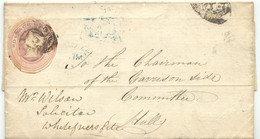 To the Chairman
of the Garrison Side
Committee
Hull
Mr Wilson
Solicitor
Whitefriargate